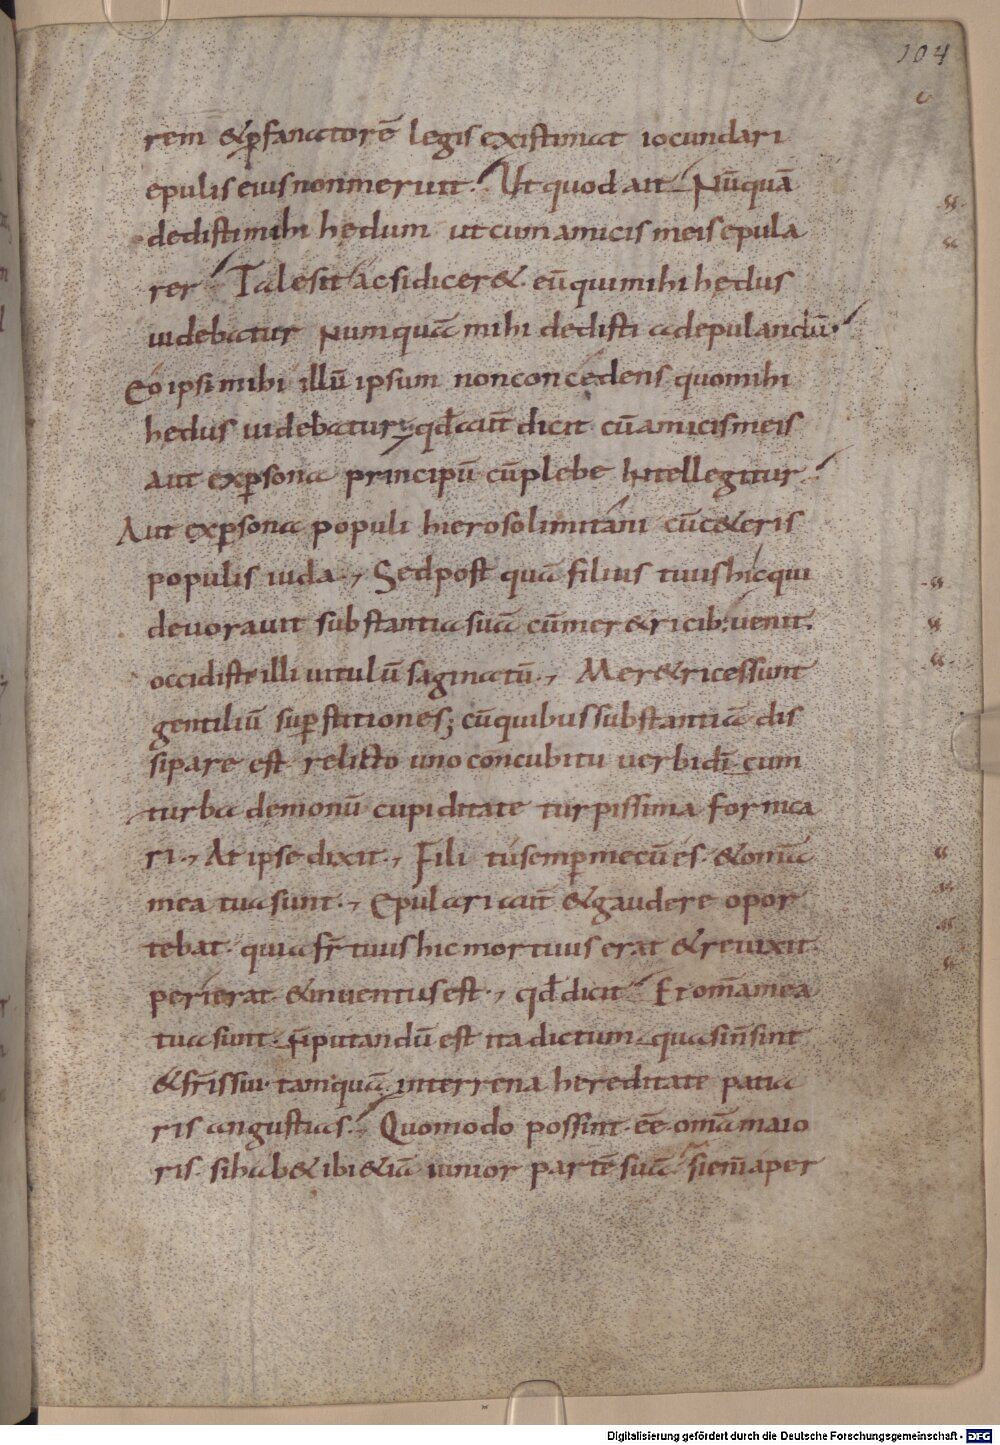 104
rem &ꝑfanatorē legis existimat iocundari
epulis eius non meruit. Ut quod ait Nūquā
dedisti mihi hędum ut cum amicis meis epula
rer Tale sit ac si dicer& eū qui mihi hędus
uidebatur Numquā mihi dedisti ad epulandū.
Eo ipsi mihi illū ipsum non concedens quo mihi
hedus uidebatur; qđ aūt dicit cū amicis meis
aut ex ꝑsona principū cū plebe Intellegitur
Aut ex ꝑsona populi hierosolimitani cū c&eris
populis iuda., Sed post quā filius tuus hic qui
deuorauit substantiā suā cū mer&ricib; uenit.
occidiste illi uitulū saginatū., Mer&rices sunt
gentiliū suꝑstitiones; cū quibus substantiā dis
sipare est relicto uno concubitu uerbi dī cum
turba demonū cupiditate turpissima fornica
ri., At ipse dixit., Fili tu semꝑ mecū es. &omīa
mea tua sunt., Epulari aūt &gaudere opor
tebat. quia fr̄ tuus hic mortuus erat &reuixit.
perierat. &inuentus est., qđ dicit Et om̄a mea
tua sunt. n̄ putandū est ita dictum quasi n̄ sint
&fr̄is sui tamquā interrena hereditate patia
ris angustias. Quomodo possint eē om̄a maio
ris. si hab& ibi &iā iunior partē suā si em̄ aper
Digitalisierung gefördert durch die Deutsche Forschungsgemeinschaft - DFG